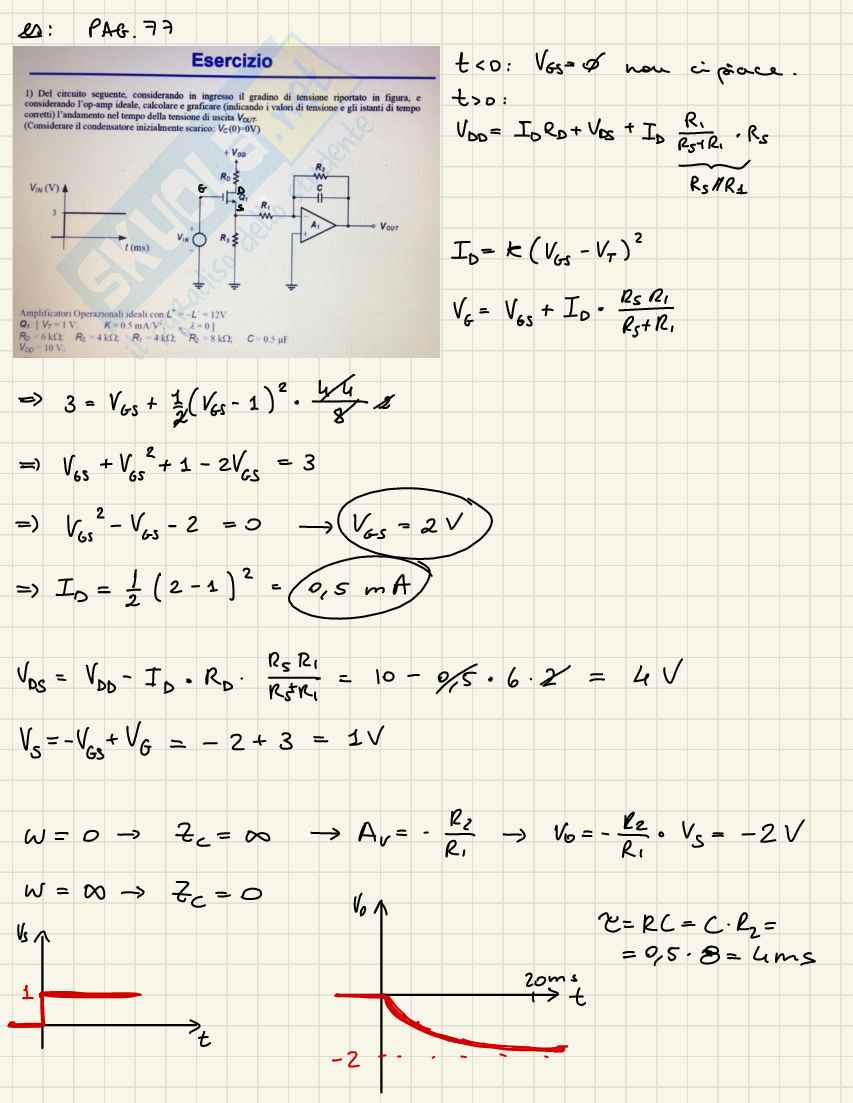 es: PAG. 77
Esercizio
1) Del circuito seguente, considerando in ingresso il gradino di tensione riportato in figura, e
considerando l'op-amp ideale, calcolare e graficare (indicando i valori di tensione e gli istanti di tempo
corretti) l'andamento nel tempo della tensione di uscita VOUT.
(Considerare il condensatore inizialmente scarico: VC(0)=0V)
+VDD
RD
G
D
Q1
S
VIN (V)
3
t (ms)
VIN
RS
R1
R2
C
A1
VOUT
Amplificatori Operazionali ideali con L+ = -L- = 12V
Q1 [ VT = 1 V K = 0.5 mA/V² λ = 0 ]
RD = 6 kΩ; RS = 4 kΩ; R1 = 4 kΩ; R2 = 8 kΩ; C = 0.5 µF
VDD = 10 V.
t<0: VGS=Ø non ci piace.
t>0:
VDD = ID RD + VDS + ID R1/(RS+R1) · RS
RS//R1
ID = k (VGS - VT)²
VG = VGS + ID · RS R1/(RS+R1)
=> 3 = VGS + 1/2 (VGS - 1)² · 4·4/8 2
=> VGS + VGS² + 1 - 2VGS = 3
=> VGS² - VGS - 2 = 0 → VGS = 2 V
=> ID = 1/2 (2-1)² = 0,5 mA
VDS = VDD - ID · RD · RS R1/(RS+R1) = 10 - 0,5 · 6 · 2 = 4 V
VS = -VGS + VG = -2 + 3 = 1V
w = 0 → ZC = ∞ → AV = - R2/R1 → V0 = - R2/R1 · VS = -2 V
w = ∞ → ZC = 0
τ = RC = C · R2 =
= 0,5 · 8 = 4ms
VS
1
t
V0
20ms
t
-2